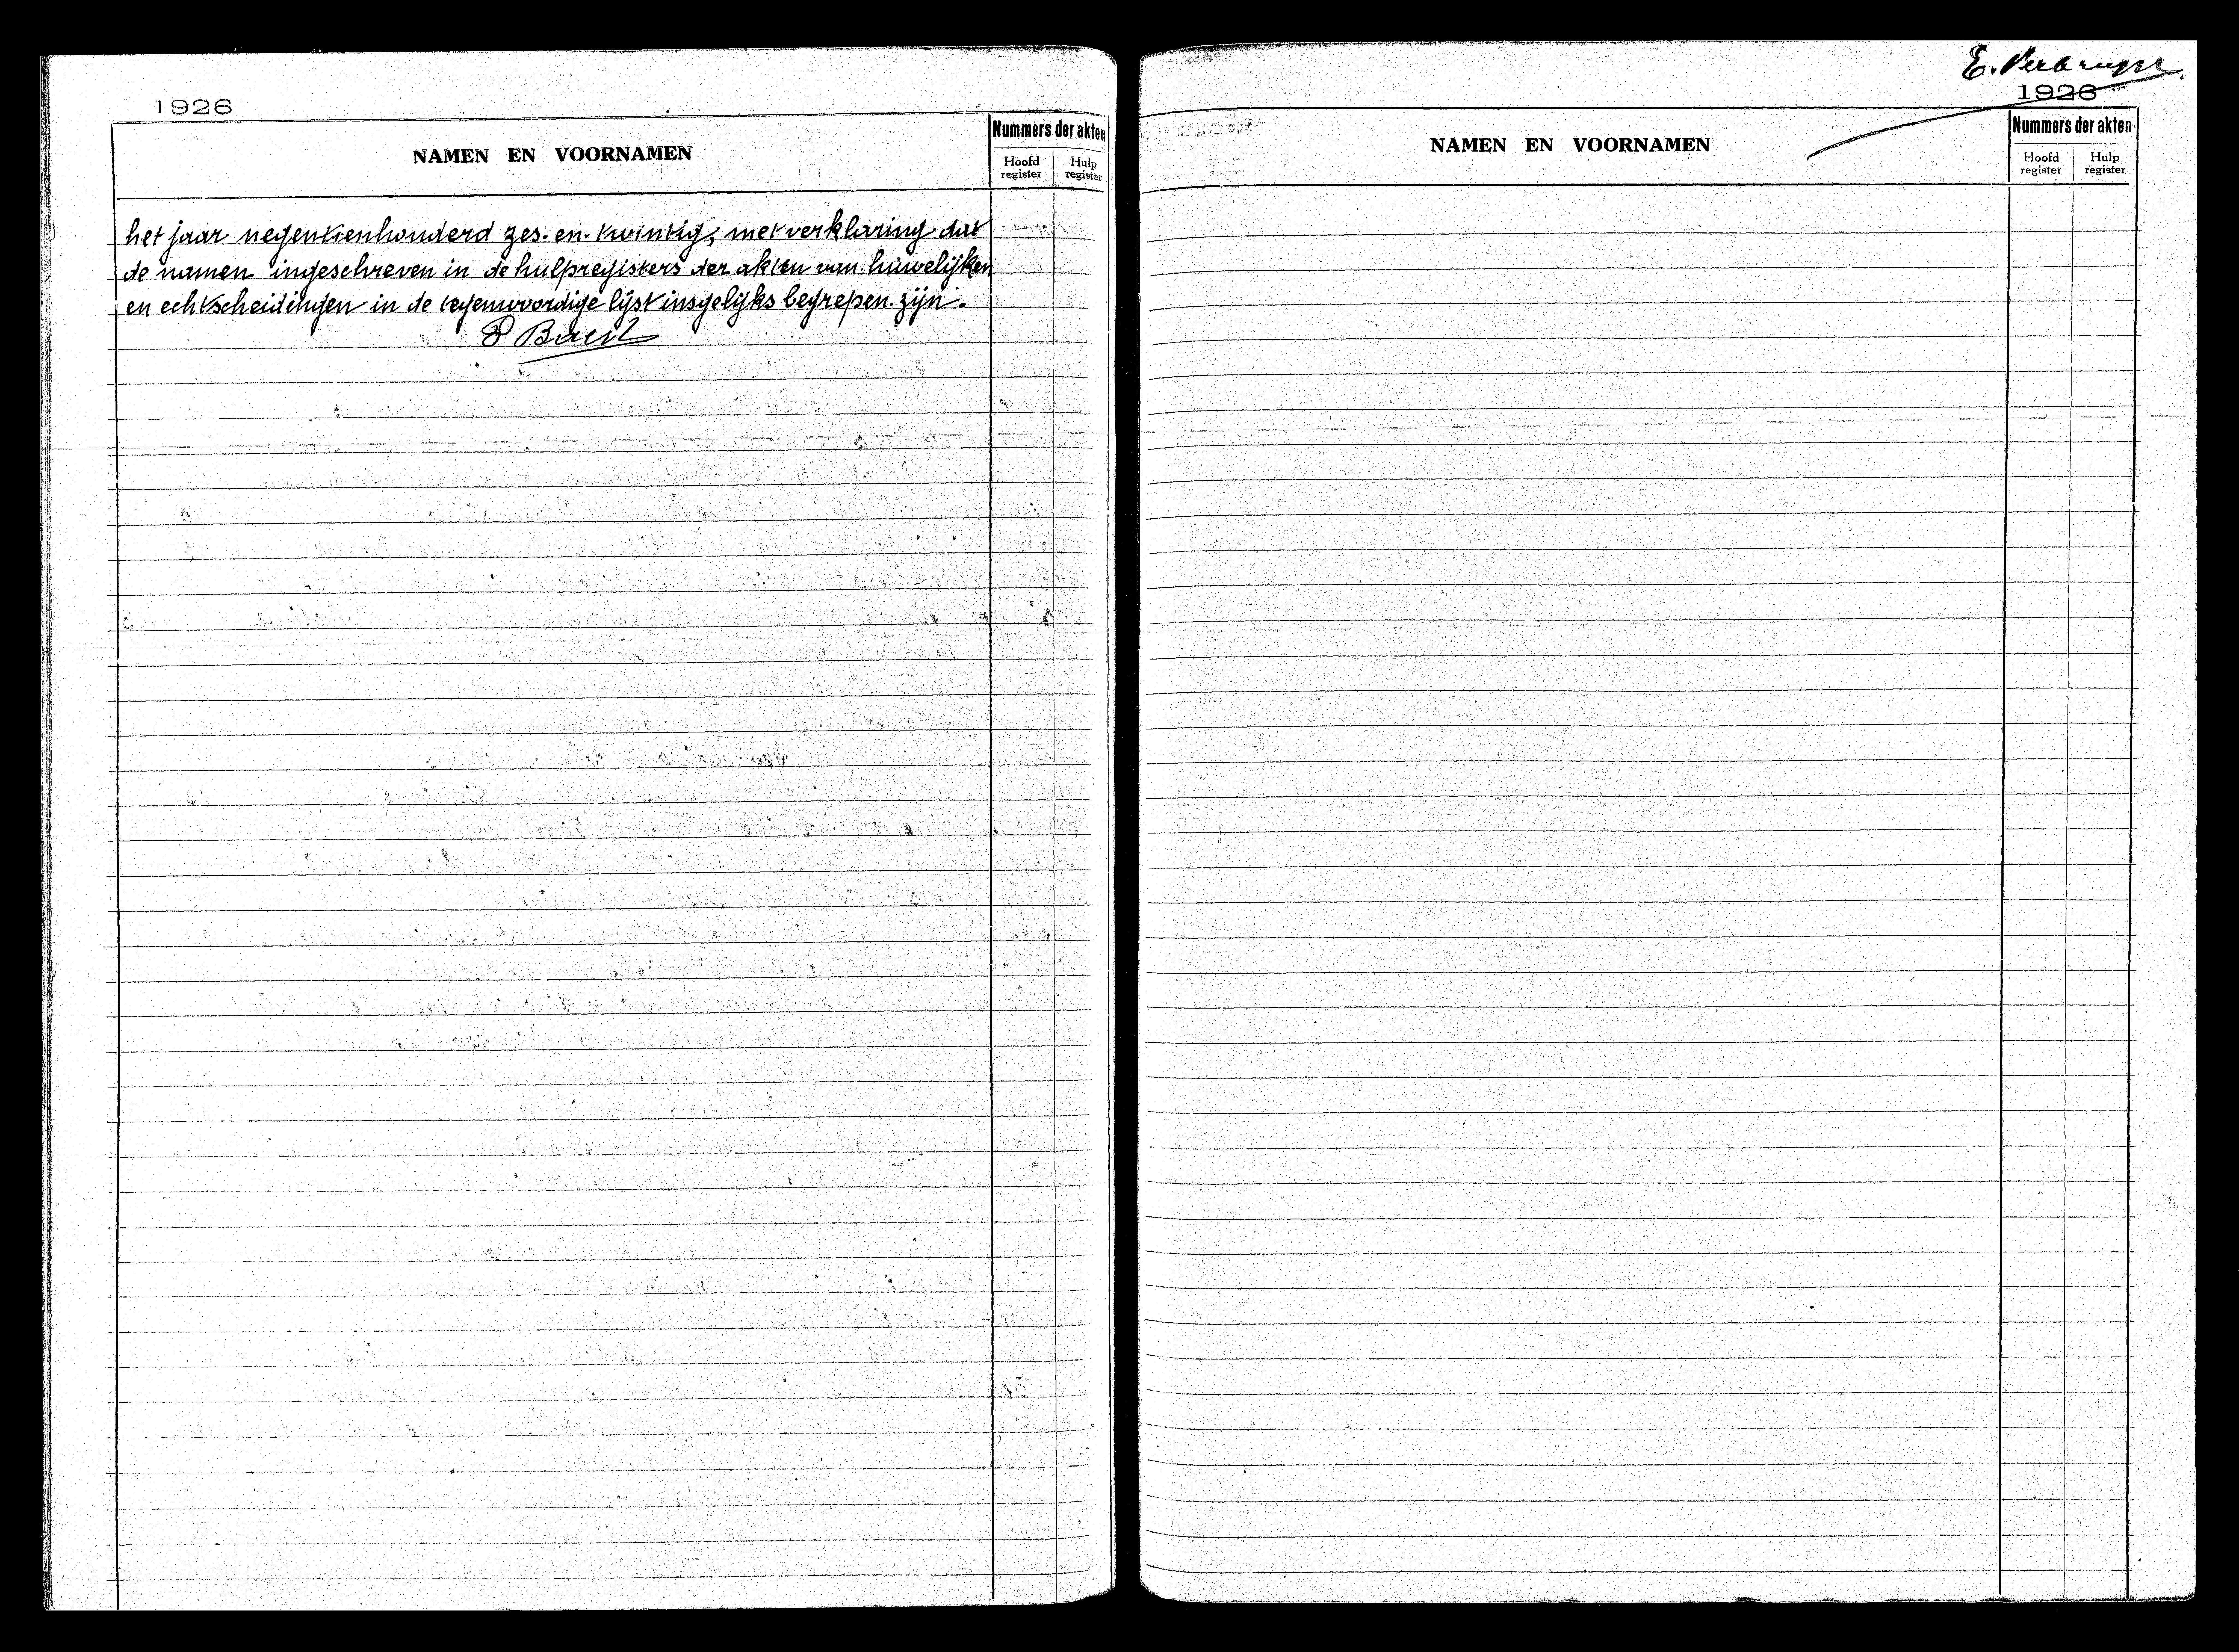 1926
NAMEN EN VOORNAMEN
Nummers der akten
Hoofd register
Hulp register
het jaar negentienhonderd zes-en-twintig, met verklaring dat
de namen ingeschreven in de hulpregisters der akten van huwelijken
en echtscheidingen in de tegenwoordige lijst insgelijks begrepen zijn.
E.
1926
NAMEN EN VOORNAMEN
Nummers der akten
Hoofd register
Hulp register